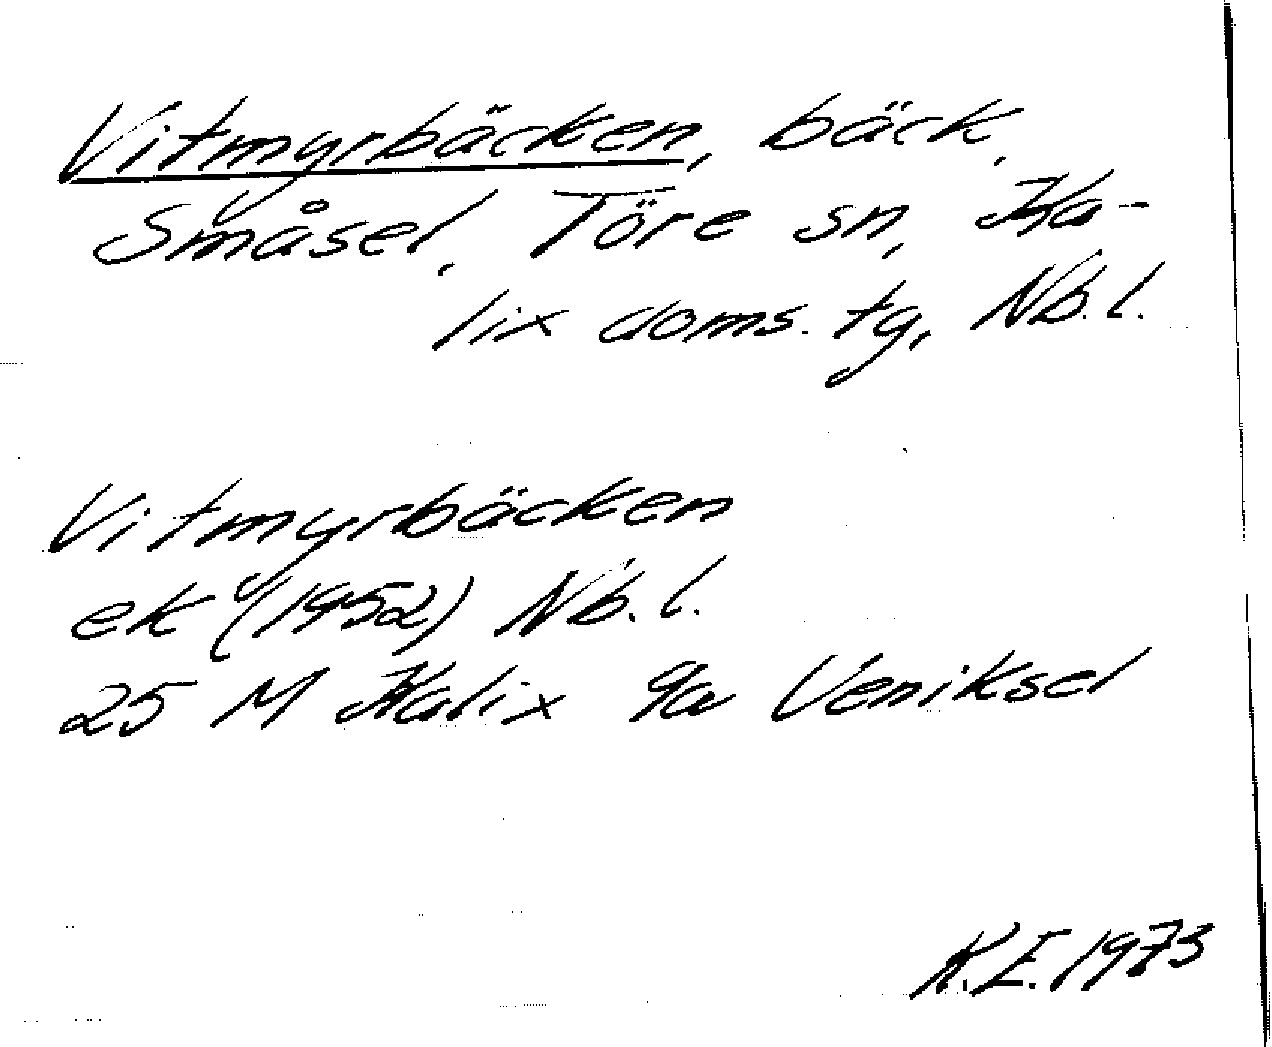 Vitmyrbäcken, bäck,
Småsel, Töre sn, Ka-
lix doms. tg, Nb.l.
Vitmyrbäcken
ek (1952) Nb.l.
25 M Kalix 9a Veniksel
K.E. 1973